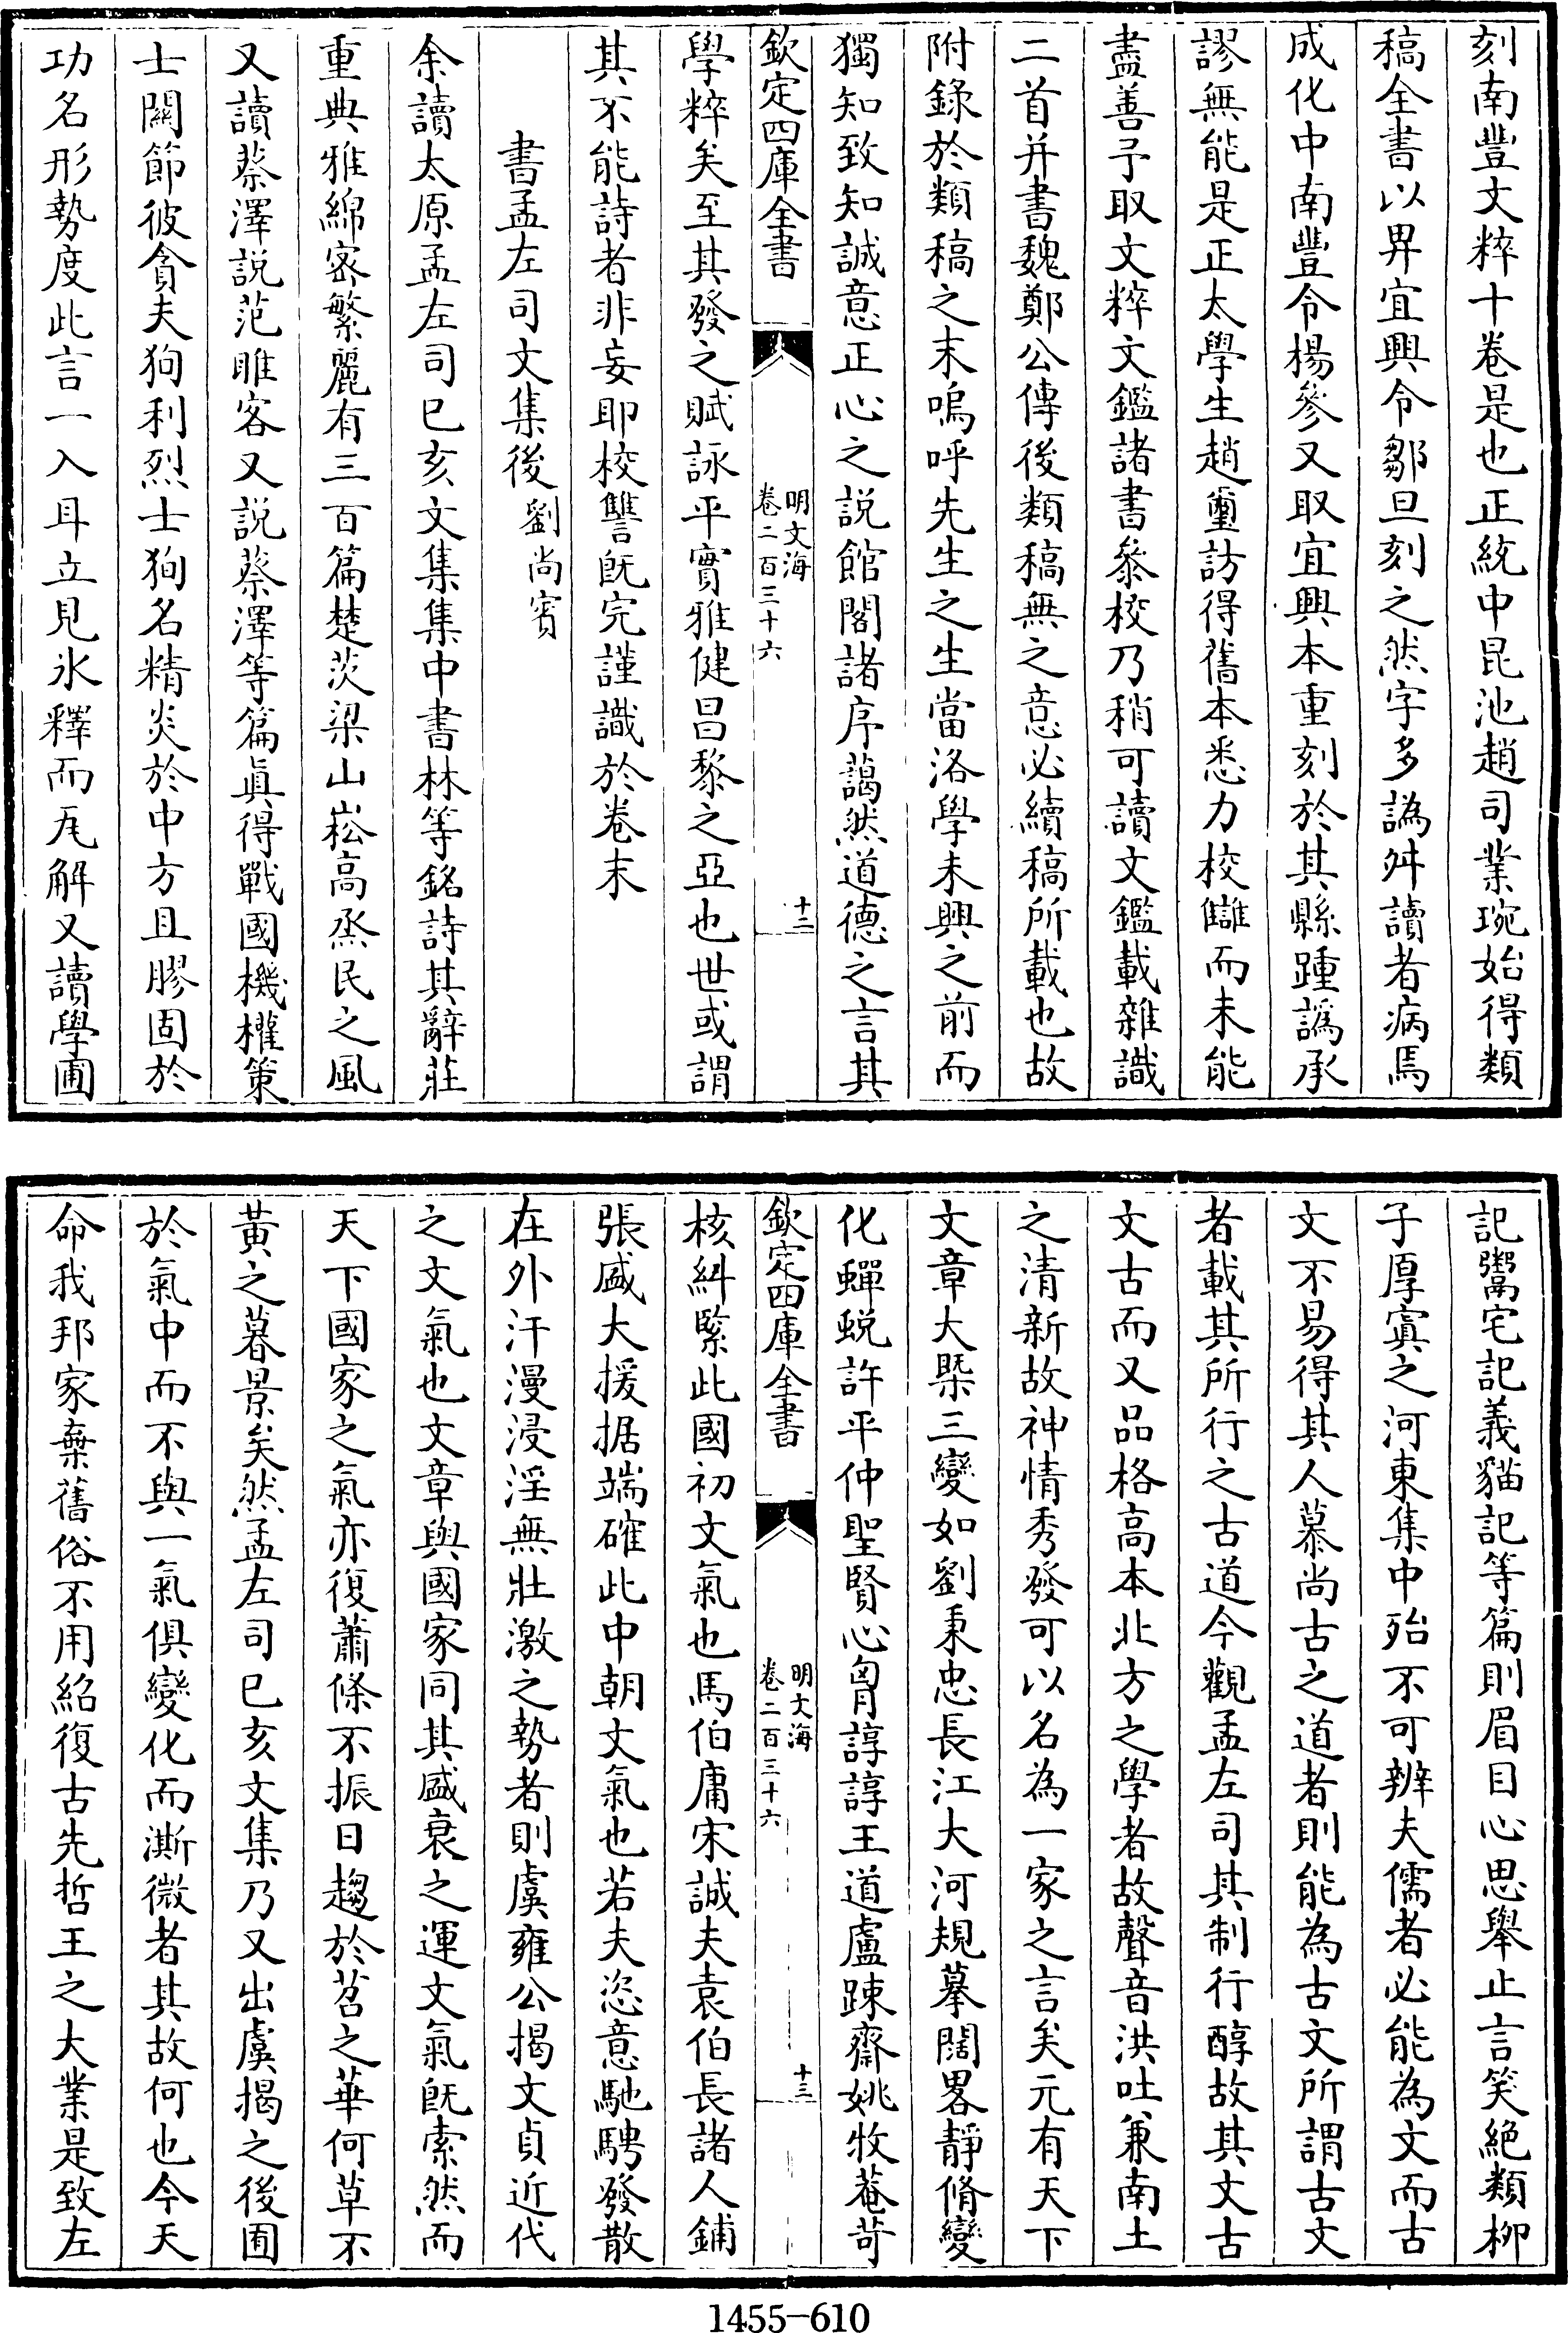 刻南豐文粹十卷是也正統中昆池趙司業琬始得類
稿全書以畀宜興令鄒旦刻之然字多譌舛讀者病焉
成化中南豐令楊參又取宜興本重刻於其縣踵譌承
謬無能是正太學生趙璽訪得舊本悉力校讎而未能
盡善予取文粹文鑑諸書參校乃稍可讀文鑑載雜識
二首并書魏鄭公傳後類稿無之意必續稿所載也故
附錄於類稿之末嗚呼先生之生當洛學未興之前而
獨知致知誠意正心之説館閣諸序藹然道德之言其
欽定四庫全書
明文海
卷二百三十六
十二
學粹矣至其發之賦詠平實雅健昌黎之亞也世或謂
其不能詩者非妄耶校讐旣完謹識於卷末
書孟左司文集後 劉尚賓
余讀太原孟左司巳亥文集集中書林等銘詩其辭莊
重典雅綿宻繁麗有三百篇楚茨梁山崧高烝民之風
又讀蔡澤説范雎客又説蔡澤等篇眞得戰國機權策
士關節彼貪夫狥利烈士狥名精炎於中方且膠固於
功名形勢度此言一入耳立見氷釋而瓦解又讀學圃
記鬻宅記義貓記等篇則眉目心思舉止言笑絕類柳
子厚寘之河東集中殆不可辨夫儒者必能為文而古
文不易得其人慕尚古之道者則能為古文所謂古文
者載其所行之古道今觀孟左司其制行醇故其文古
文古而又品格高本北方之學者故聲音洪吐兼南土
之清新故神情秀發可以名為一家之言矣元有天下
文章大槩三變如劉秉忠長江大河規摹闊畧靜脩變
化蟬蛻許平仲聖賢心胷諄諄王道盧踈齋姚牧菴苛
欽定四庫全書
明文海
卷二百三十六
十三
核糾緊此國初文氣也馬伯庸宋誠夫袁伯長諸人鋪
張盛大援据端確此中朝文氣也若夫恣意馳騁發散
在外汗漫浸淫無壯激之勢者則虞雍公揭文貞近代
之文氣也文章與國家同其盛衰之運文氣旣索然而
天下國家之氣亦復蕭條不振日趨於苕之華何草不
黃之暮景矣然孟左司巳亥文集乃又出虞揭之後囿
於氣中而不與一氣俱變化而澌微者其故何也今天
命我邦家棄舊俗不用紹復古先哲王之大業是致左
1455-610